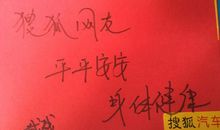 搜狐网友
平平安安
身体健康
搜狐汽车